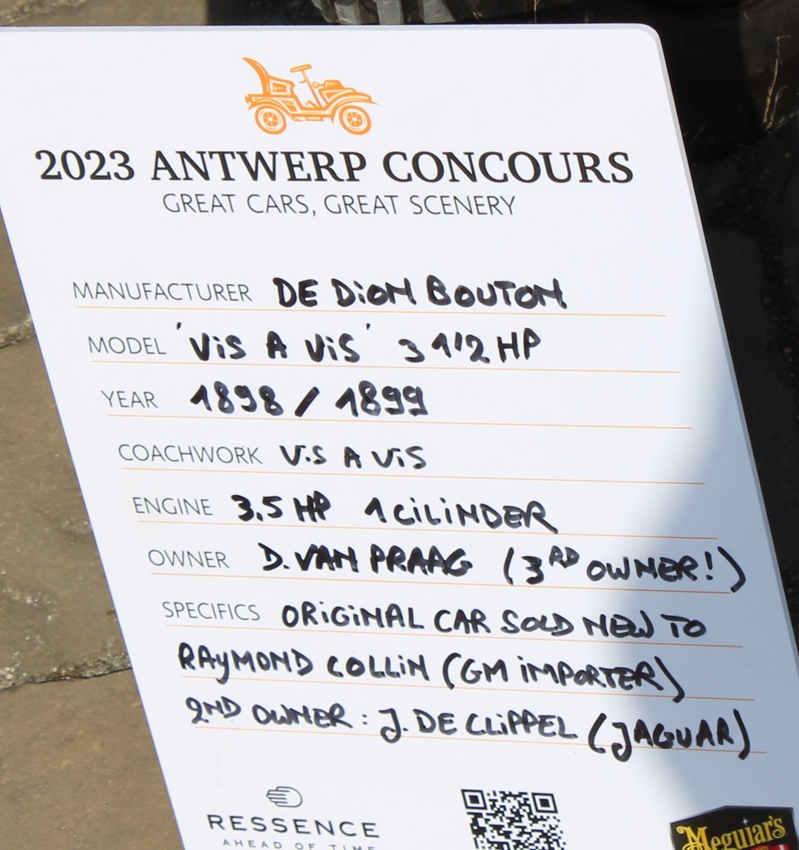 2023 ANTWERP CONCOURS
GREAT CARS, GREAT SCENERY
MANUFACTURER DE DION BOUTON
MODEL 'ViS A ViS' 3 1/2 HP
YEAR 1898 / 1899
COACHWORK ViS A ViS
ENGINE 3.5 HP 1 CiLiNDER
OWNER D. VAN PRAAG (3RD OWNER!)
SPECIFICS ORiGiNAL CAR SOLD NEW TO
RAyMOND COLLiN (GM iMPORTER)
2ND OWNER : J. DE CLiPPEL (JAGUAR)
RESSENCE
AHEAD OF TIME
Meguiar's